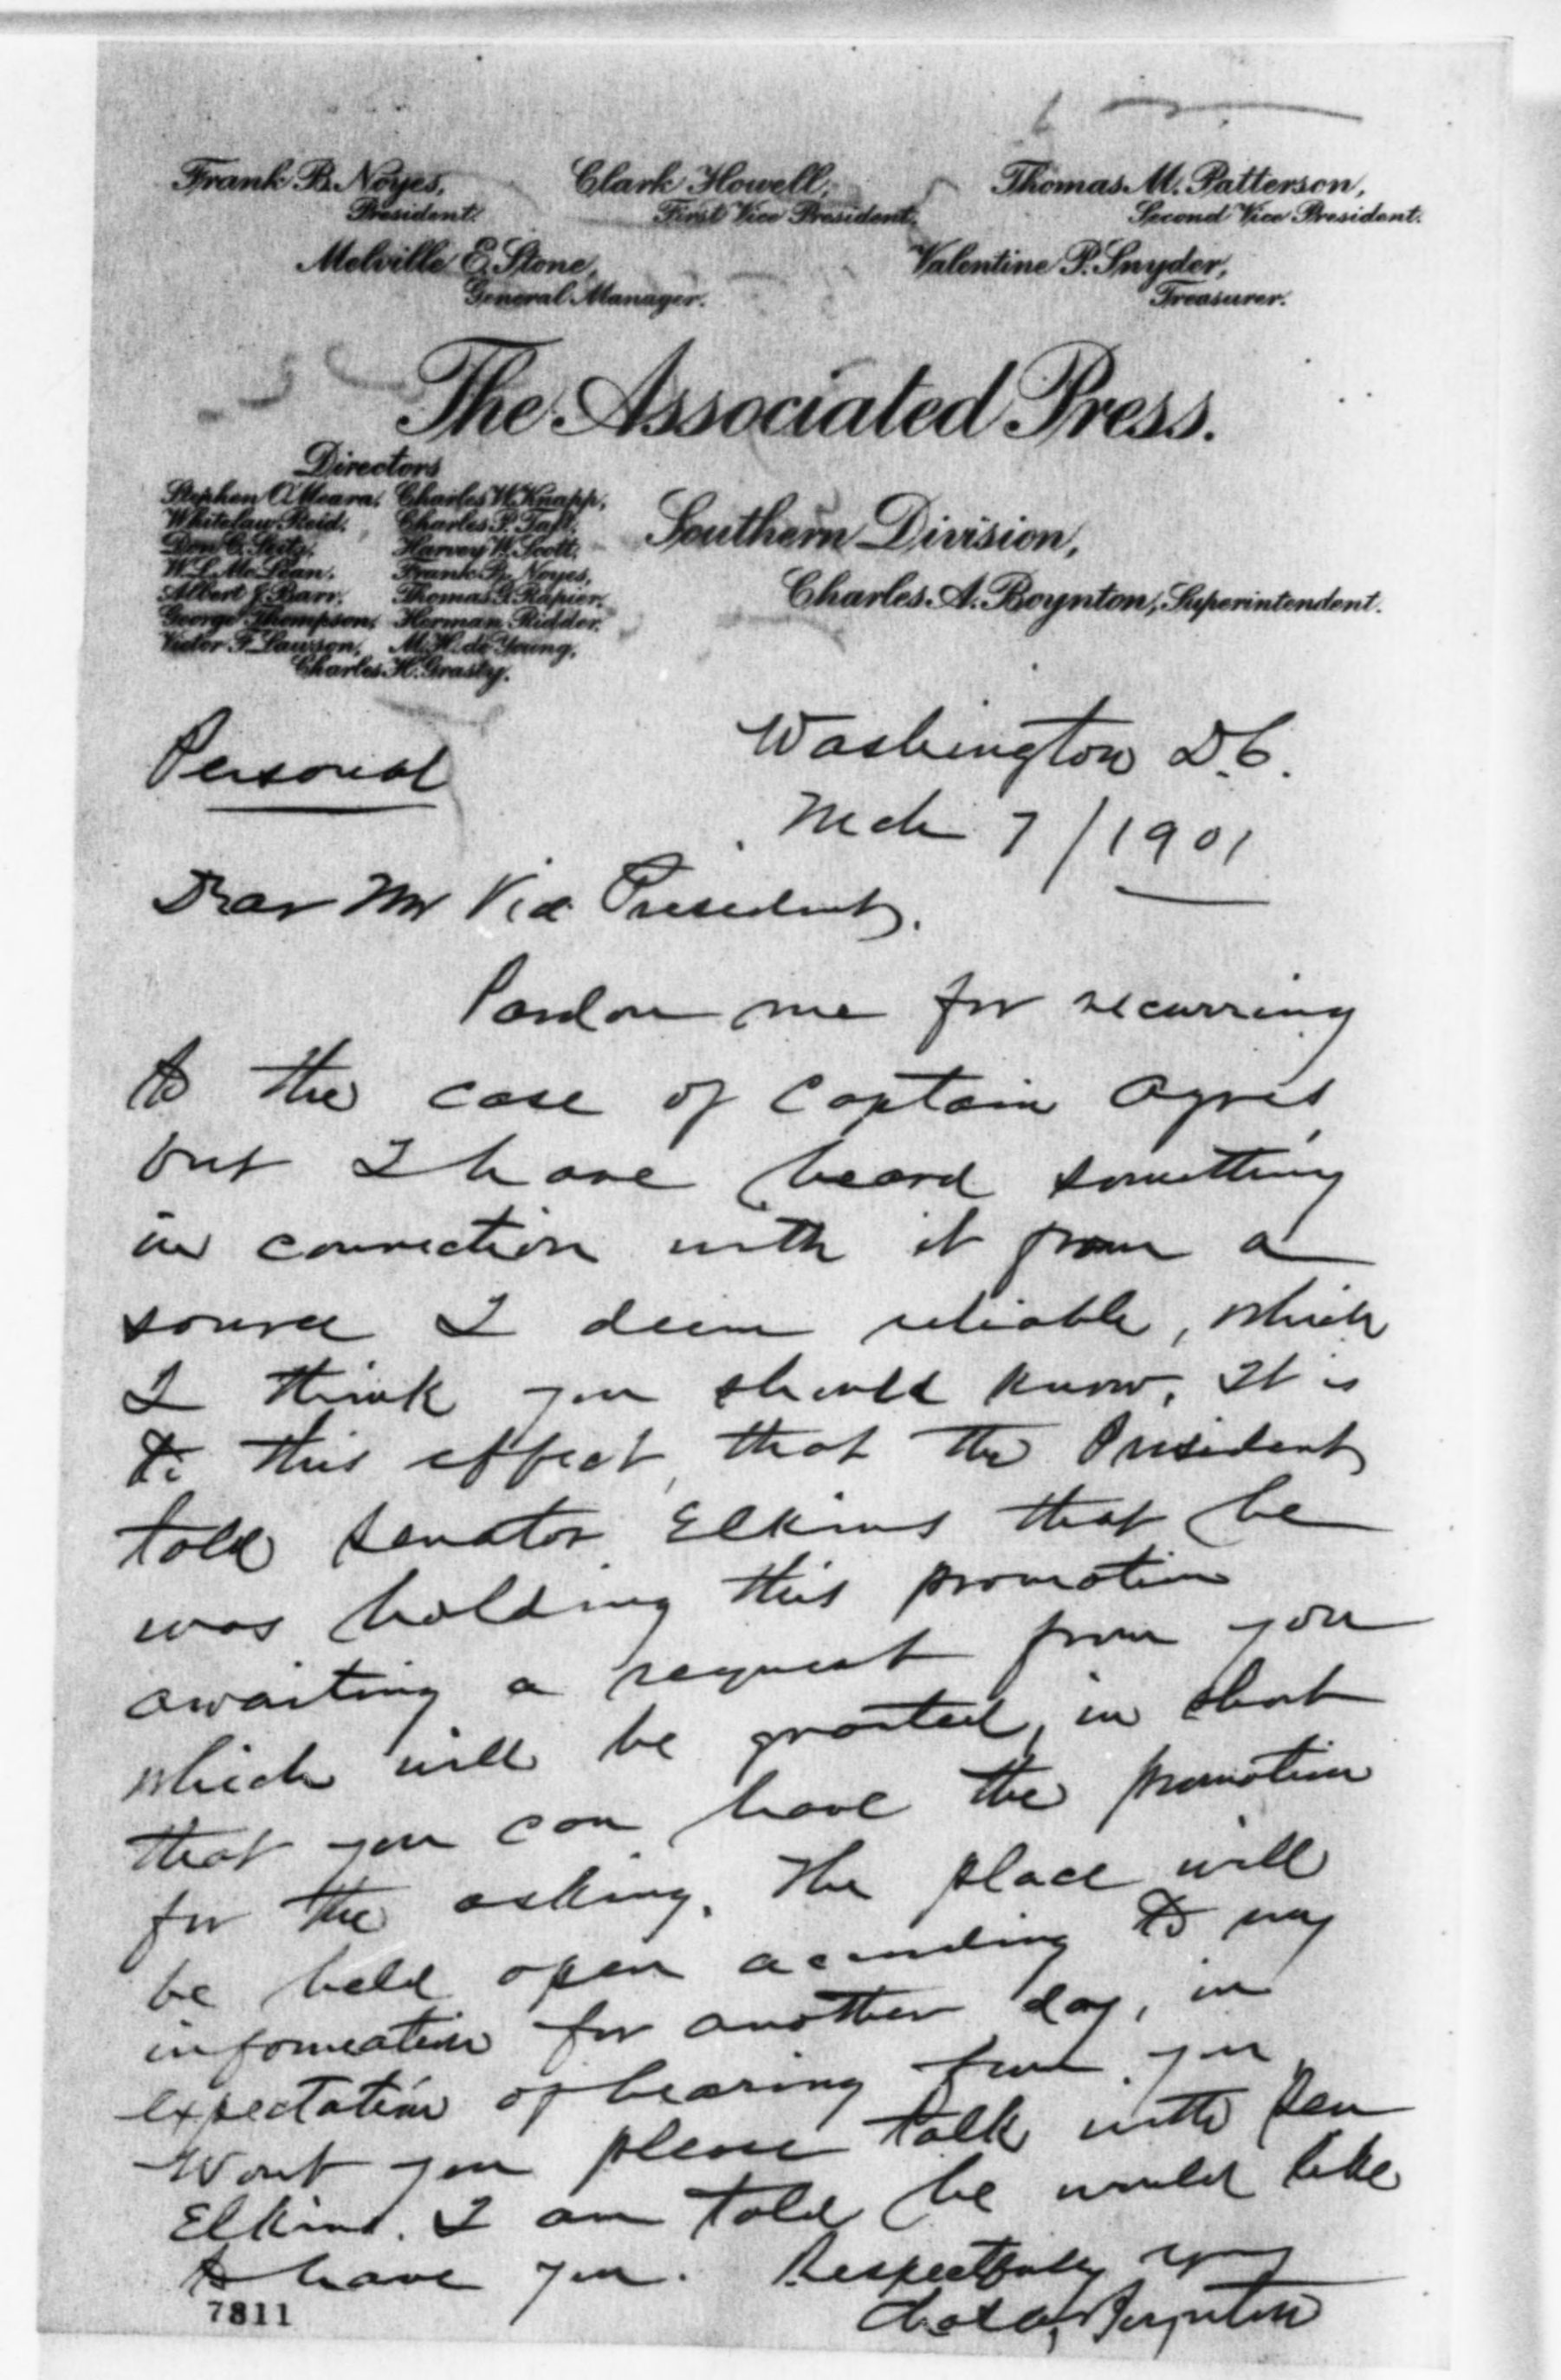 Frank B. Noyes, Clark Howell, Thomas M. Patterson,
President. First Vice President. Second Vice President.
Melville E. Stone, Valentine P. Snyder,
General Manager. Treasurer.
The Associated Press.
Directors
Stephen O'Meara, Charles W. Knapp,
Whitelaw Reid, Charles P. Taft,
Don C. Seitz, Harvey W. Scott,
W. L. McLean, Frank B. Noyes,
Albert J. Barr, Thomas G. Rapier,
George Thompson, Herman Ridder,
Victor F. Lawson, M. H. de Young,
Charles H. Grasty.
Southern Division,
Charles A. Boynton, Superintendent.
Personal
Washington D.C.
Mch 7/1901
Dear Mr Vice President.
Pardon me for recurring
to the case of Captain Ayres,
but I have heard something
in connection with it from a
source I deem reliable, which
I think you should know. It is
to this effect, that the President
told Senator Elkins that he
was holding this promotion
awaiting a request from you
which will be granted, in short
that you can have the promotion
for the asking. The place will
be held open according to my
information for another day, in
expectation of hearing from you.
Wont you please talk with Sen
Elkins. I am told he would like
to have you. Respectfully yours
Chas A. Boynton
7811